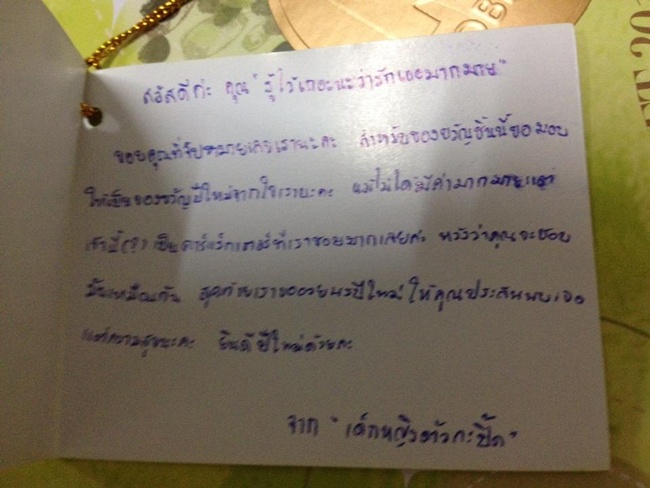 สวัสดีค่ะ คุณ "รู้ไว้เถอะนะว่ารักเธอมากมาย"
ขอบคุณที่จับหมายเลขเรานะคะ สำหรับของขวัญชิ้นนี้ขอมอบ
ให้เป็นของขวัญปีใหม่จากใจเรานะคะ แม้ไม่ได้มีค่ามากมายแต่
เจ้านี่(?) เป็นคาร์แร็กเตอร์ที่เราชอบมากเลยค่ะ หวังว่าคุณจะชอบ
มันเหมือนกัน สุดท้ายเราขออวยพรปีใหม่ ให้คุณประสบพบเจอ
แต่ความสุขนะคะ ยินดีปีใหม่ด้วยคะ
จาก "เด็กหญิงตัวกะปิ๊ด"